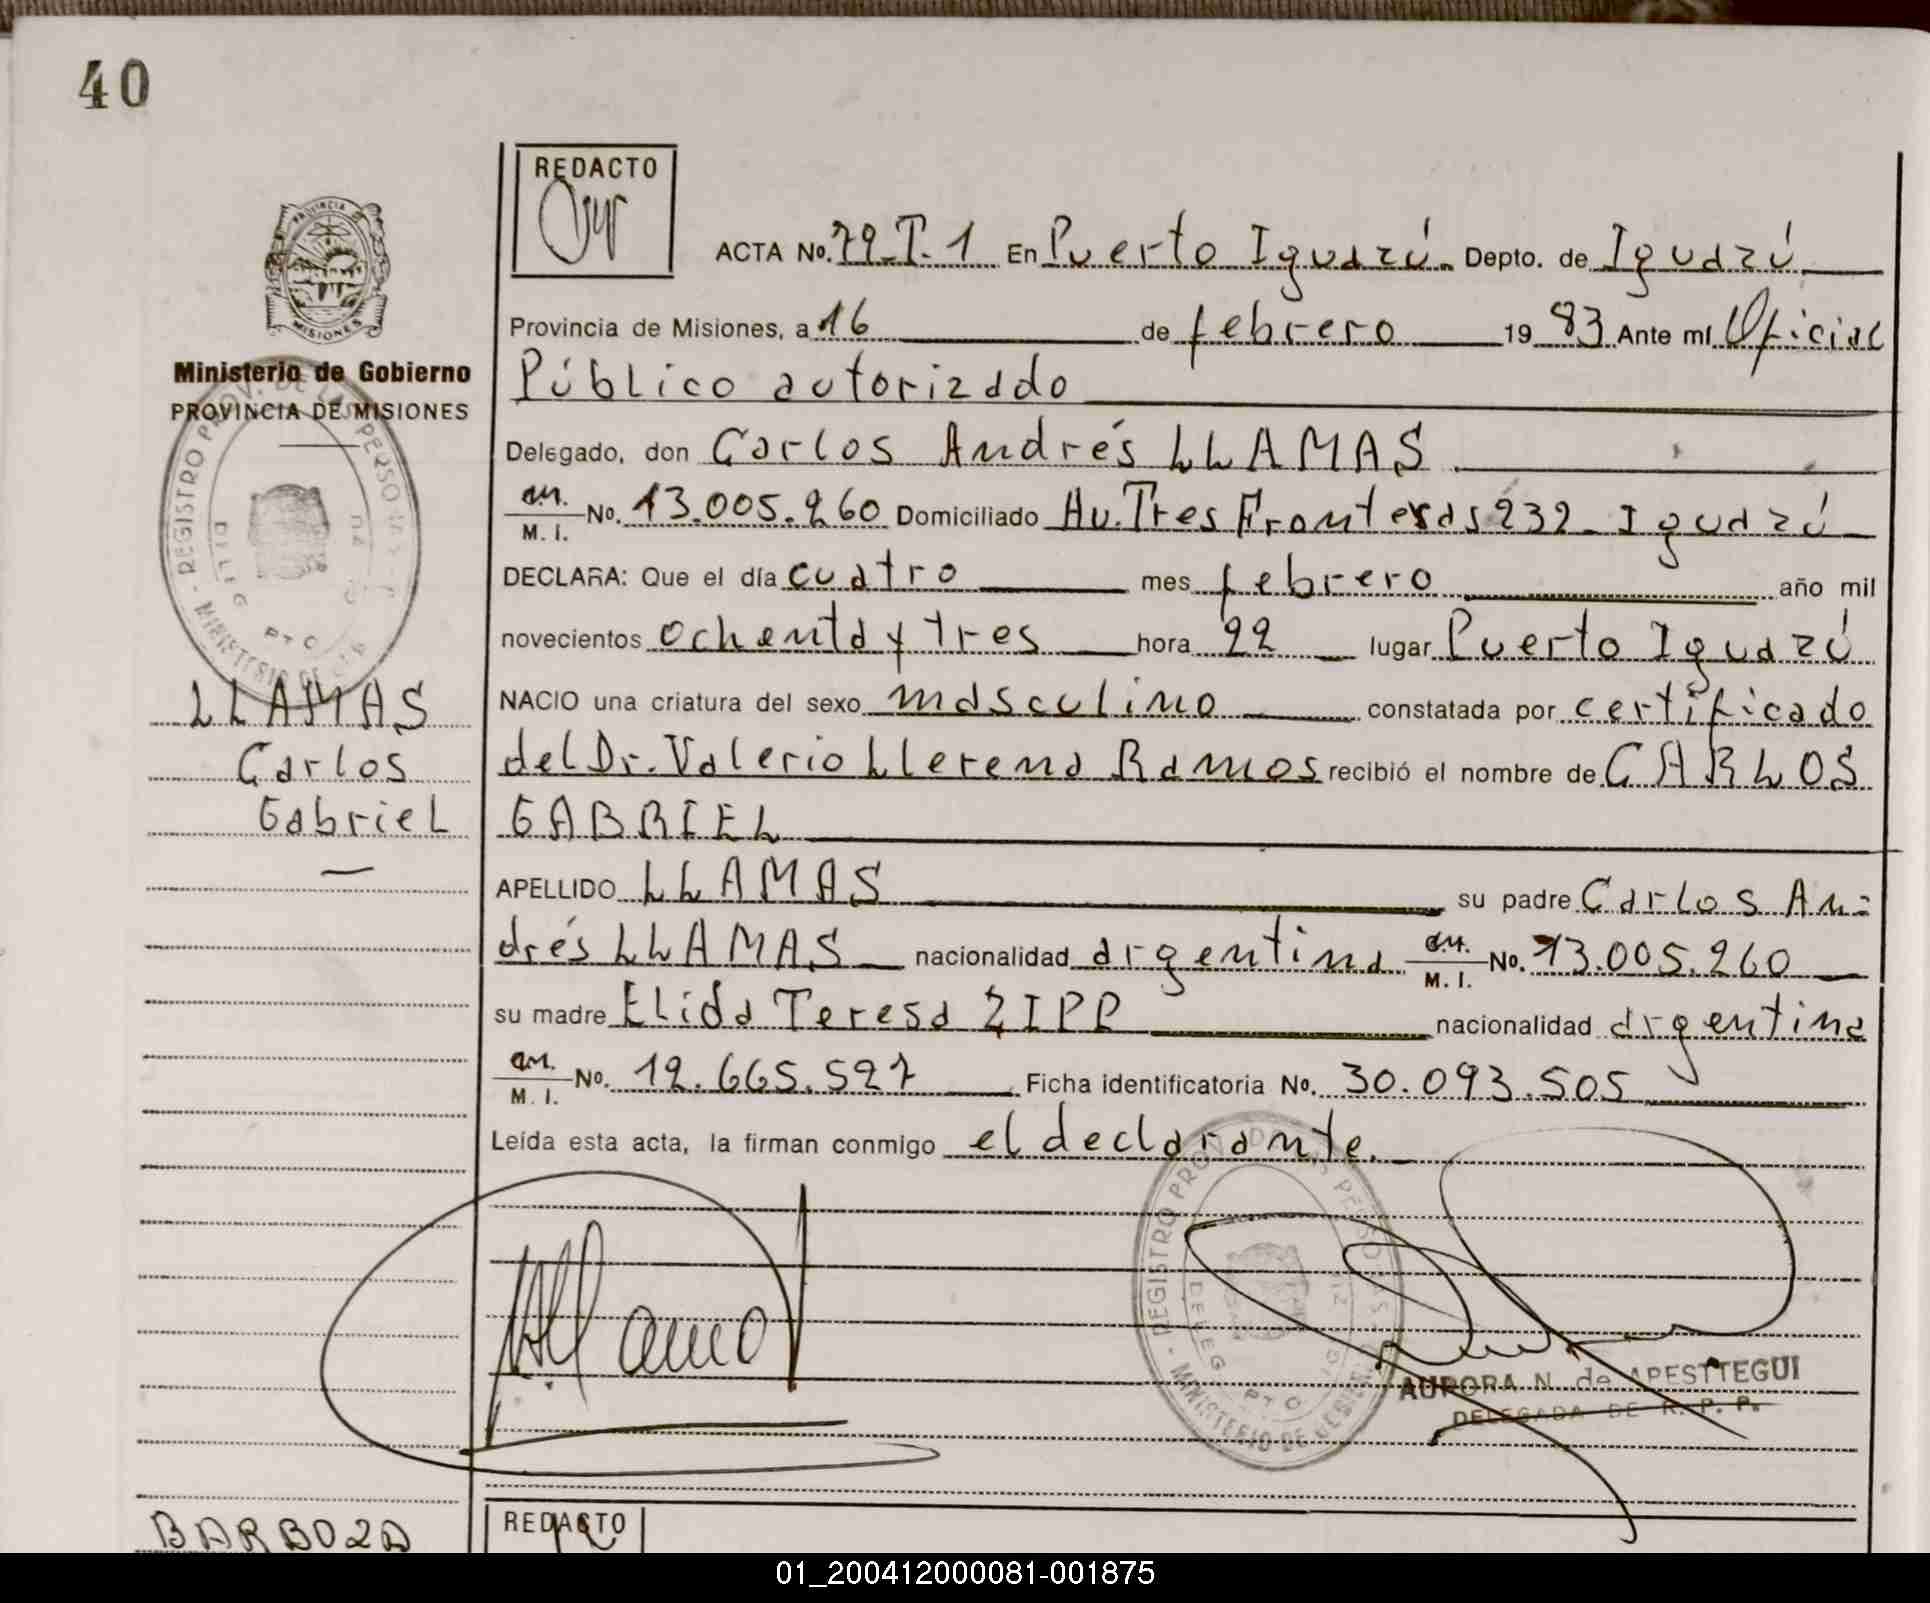 40
REDACTO
ACTA No. 79_T.1 En Puerto Iguazú. Depto. de Iguazú
PROVINCIA MISIONES
Provincia de Misiones, a 16 de febrero 1983 Ante mí Oficial
Ministerio de Gobierno
Público autorizado
PROVINCIA DE MISIONES
Delegado, don Carlos Andrés LLAMAS
M. I. No. 13.005.260 Domiciliado Av. Tres Fronteras 232_ Iguazú
DECLARA: Que el día cuatro mes febrero año mil
novecientos ochenta y tres hora 22 lugar Puerto Iguazú
LLAMAS
NACIO una criatura del sexo masculino constatada por certificado
Carlos
del Dr. Valerio Llerena Ramos recibió el nombre de CARLOS
Gabriel
GABRIEL
APELLIDO LLAMAS su padre Carlos An=
drés LLAMAS nacionalidad argentina M. I. No. 13.005.260
su madre Elida Teresa ZIPP nacionalidad argentina
M. I. No. 12.665.527 Ficha identificatoria No. 30.093.505
Leída esta acta, la firman conmigo el declarante.
REGISTRO PROV. DE LAS PERSONAS
DELEG PTO
MINISTERIO DE
AURORA N. de APESTTEGUI
DELEGADA DE R. P. P.
BARBOZA
REDACTO
01_200412000081-001875